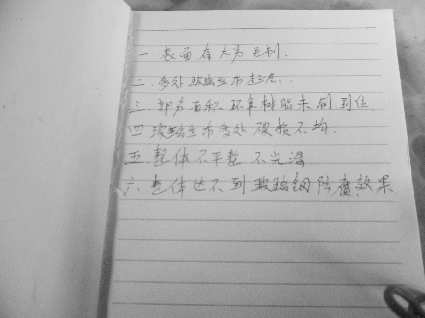 一 表面存大为毛刺.
二. 多处玻璃丝布起泡..
三. 部分面积环氧树脂未刷到位
四 玻璃丝布多处破损不均.
五 整体不平整 不光滑
六. 整体达不到玻璃钢防腐效果